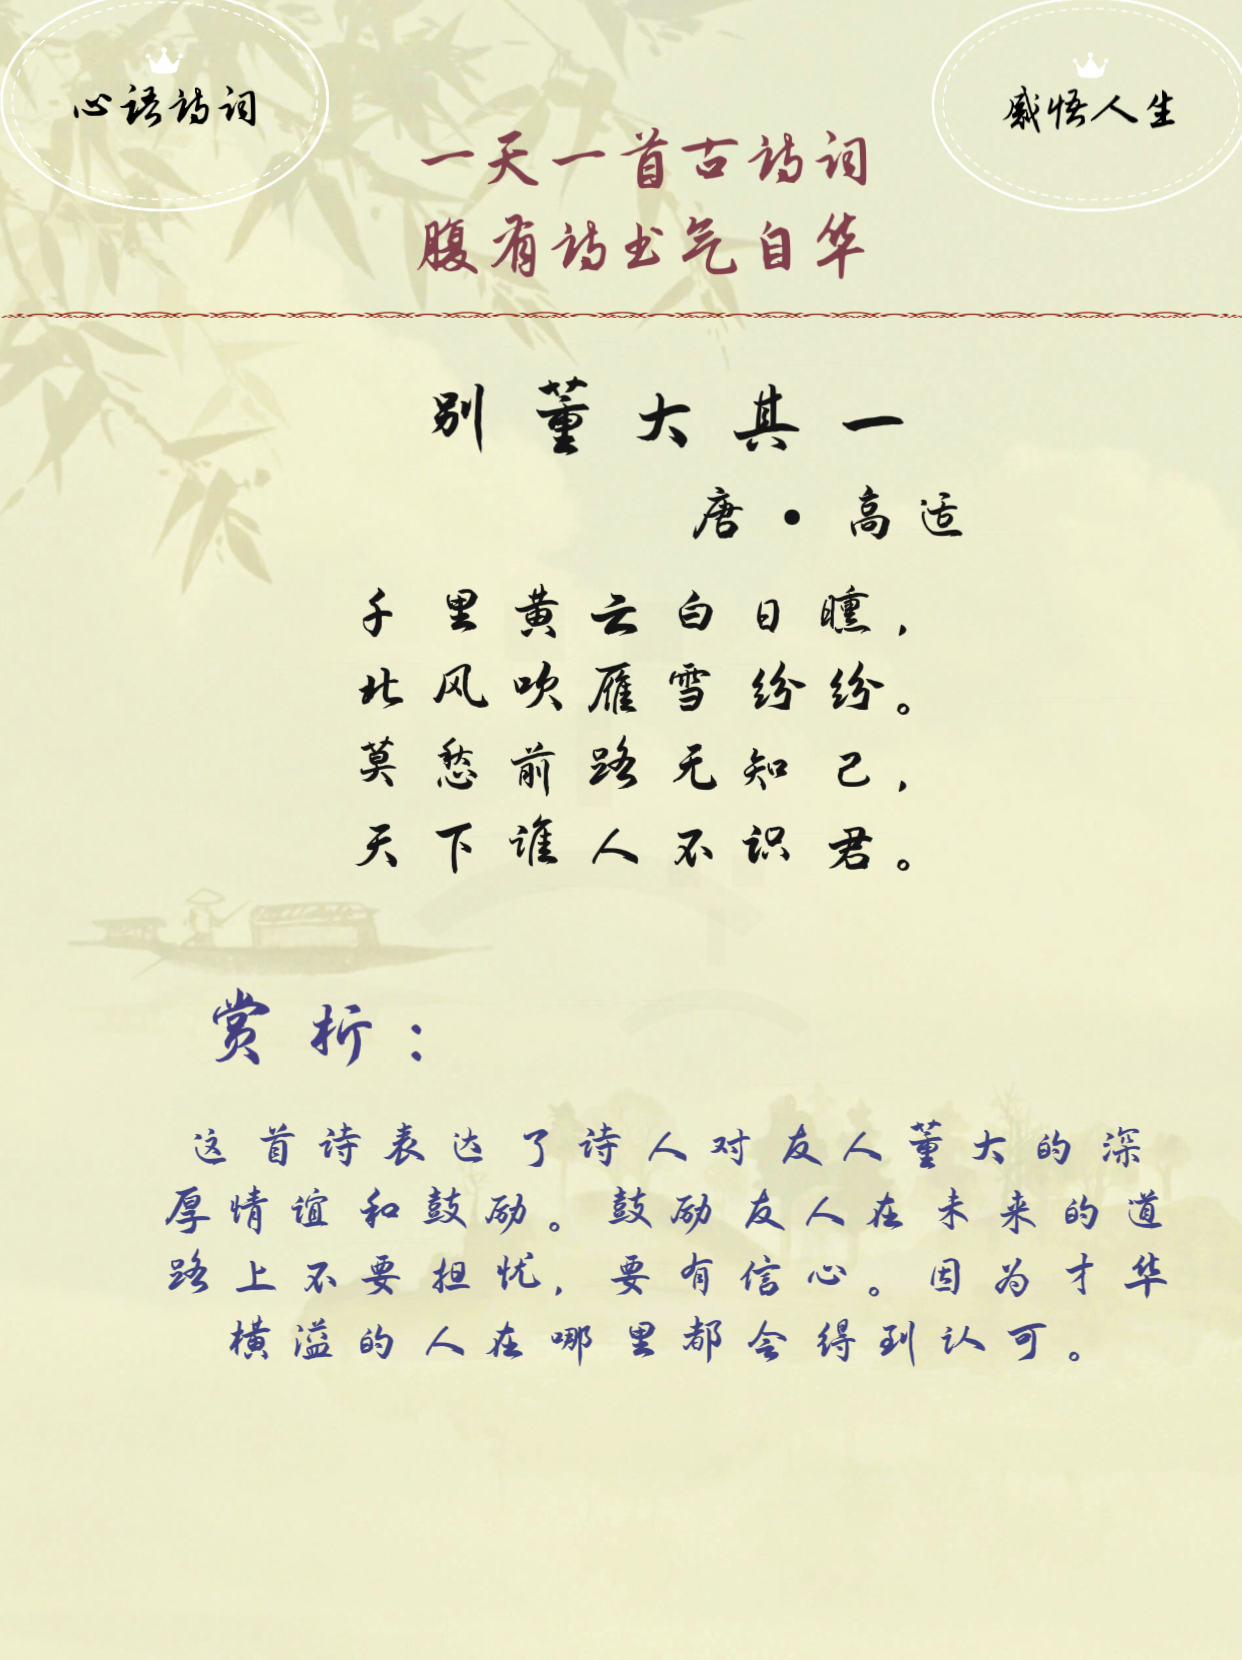 心语诗词
感悟人生
一天一首古诗词
腹有诗书气自华
别董大其一
唐·高适
千里黄云白日曛，
北风吹雁雪纷纷。
莫愁前路无知己，
天下谁人不识君。
赏析：
这首诗表达了诗人对友人董大的深
厚情谊和鼓励。鼓励友人在未来的道
路上不要担忧，要有信心。因为才华
横溢的人在哪里都会得到认可。